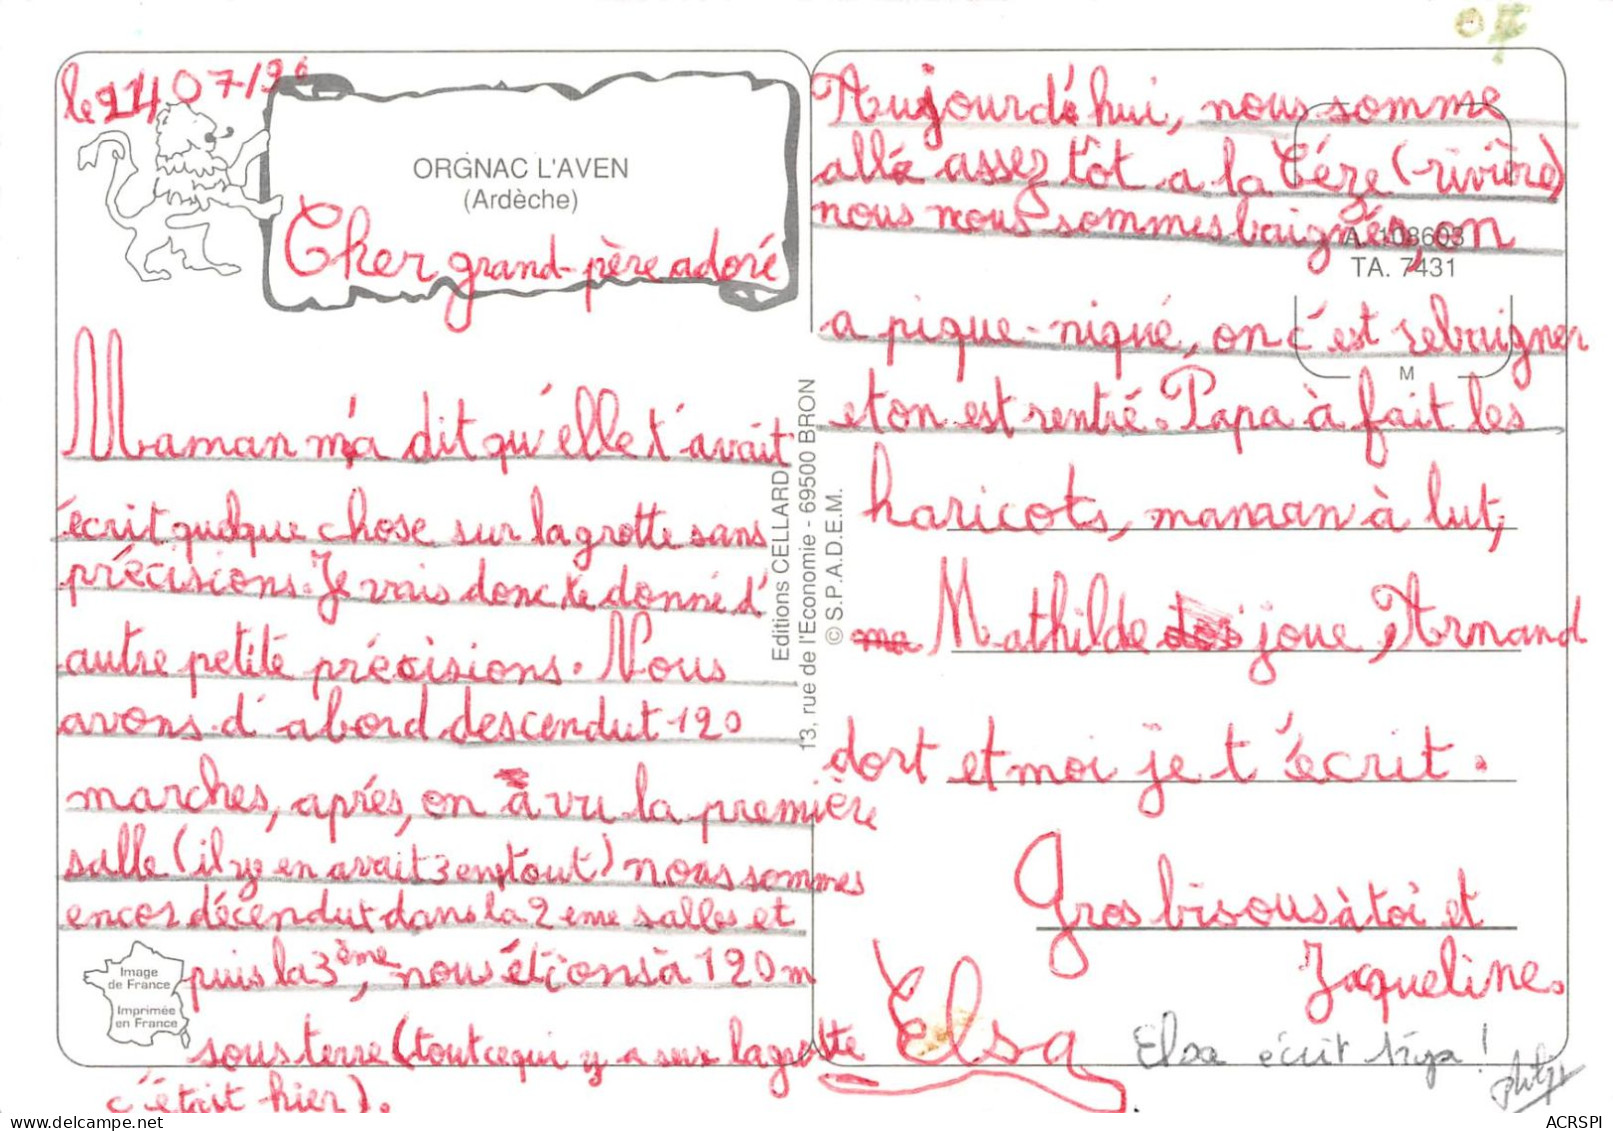 le 21/07/96
ORGNAC L'AVEN
(Ardèche)
Cher grand-père adoré
Maman m'a dit qu'elle t'avait
écrit quelque chose sur la grotte sans
précisions. Je vais donc te donné d'
autre petité précisions. Nous
avons d'abord descendut 120
marches, aprés, on à vu la première
salle (il y en avait 3 en tout) nous sommes
encor décendut dans la 2eme salles et
puis la 3ème, nous étions à 120m
sous terre (tout ce qui y a sur la grotte
c'était hier).
Image
de France
Imprimée
en France
Editions CELLARD
13, rue de l'Economie - 69500 BRON
© S.P.A.D.E.M.
A. 108603
TA. 7431
M
Aujourd'hui, nous somme
allé assez tôt a la Céze (rivière)
nous nous sommes baignés, on
a pique-niqué, on c'est rebaigner
et on est rentré. Papa à fait les
haricots, maman à lut,
Mathilde joue, Armand
dort et moi je t'écrit.
Gros bisous à toi et
Jaqueline.
Elsa
Elsa écrit !
ACRSPI